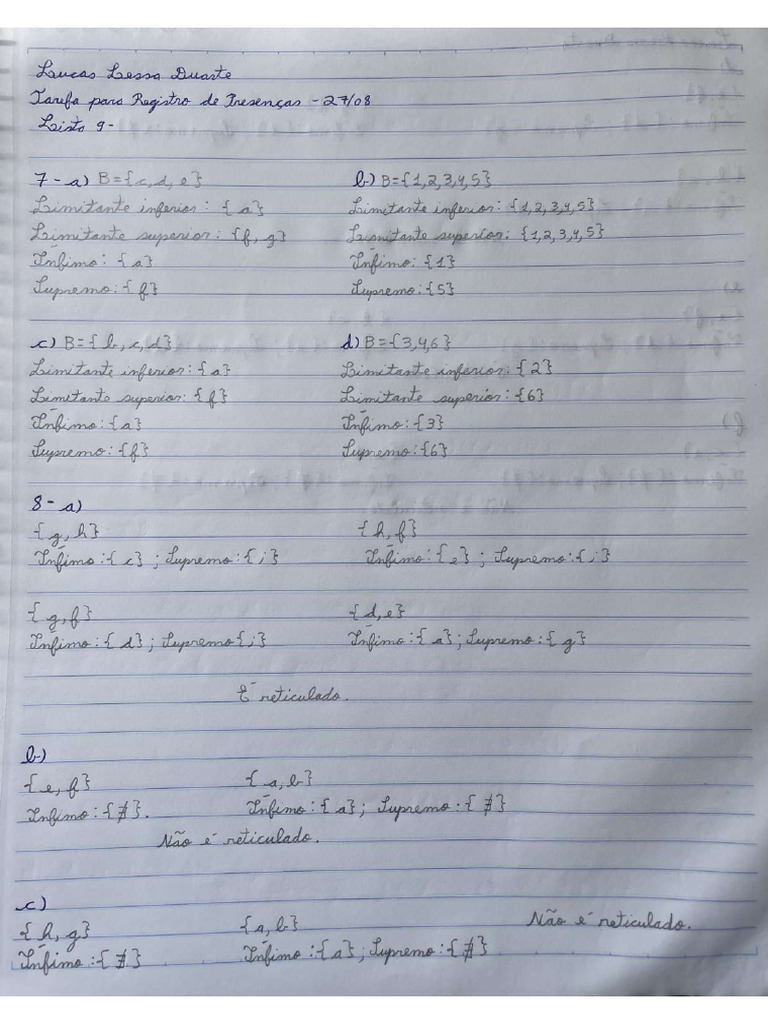 Lucas Lessa Duarte
Tarefa para Registro de Presenças - 27/08
Lista 9-
7- a) B={c,d,e}
Limitante inferior: {a}
Limitante superior: {f, g}
Ínfimo: {a}
Supremo: {f}
b) B={1,2,3,4,5}
Limitante inferior: {1,2,3,4,5}
Limitante superior: {1,2,3,4,5}
Ínfimo: {1}
Supremo: {5}
c) B={b,c,d}
Limitante inferior: {a}
Limitante superior: {f}
Ínfimo: {a}
Supremo: {f}
d) B={3,4,6}
Limitante inferior: {2}
Limitante superior: {6}
Ínfimo: {3}
Supremo: {6}
8- a)
{g,h}
Ínfimo: {c} ; Supremo: {i}
{h,f}
Ínfimo: {e} ; Supremo: {i}
{g,f}
Ínfimo: {d} ; Supremo {i}
{d,e}
Ínfimo: {a} ; Supremo: {g}
É reticulado.
b)
{e,f}
Ínfimo: {∄}.
{a,b}
Ínfimo: {a} ; Supremo: {∄}
Não é reticulado.
c)
{h,g}
Ínfimo: {∄}
{a,b}
Ínfimo: {a} ; Supremo: {∄}
Não é reticulado.